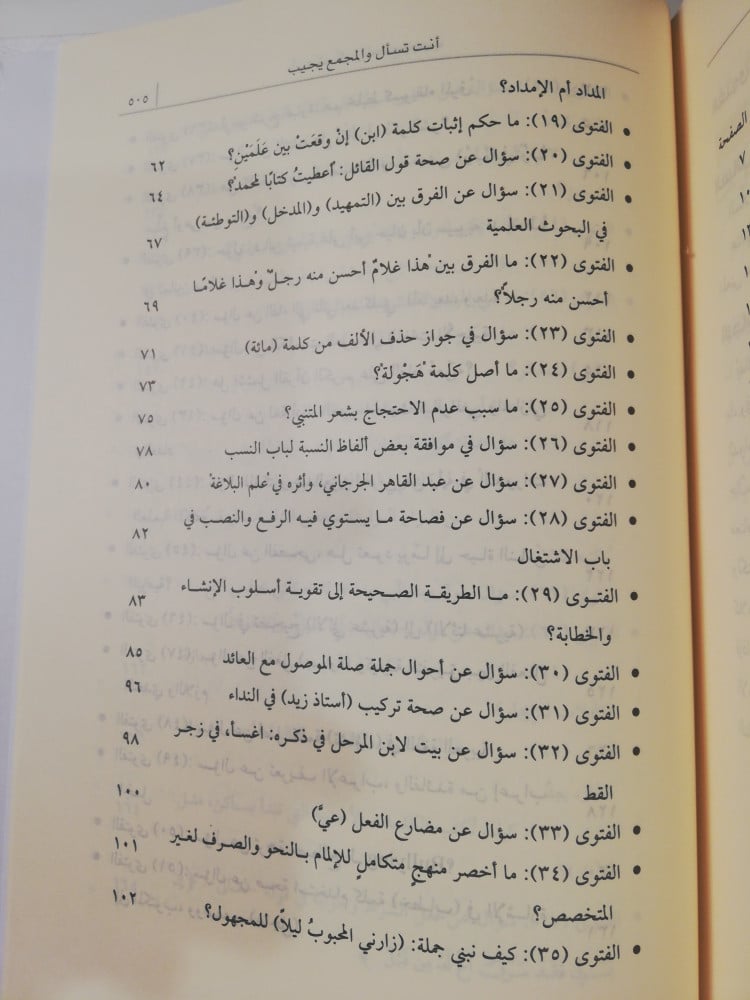 أنت تسأل والمجمع يجيب
٥٠٥
المداد أم الإمداد؟
• الفتوى (١٩): ما حكم إثبات كلمة (ابن) إنْ وقعَتْ بين عَلَمَيْنِ؟ ٦٢
• الفتوى (٢٠): سؤال عن صحة قول القائل: أعطيتُ كتابًا لمحمد؟ ٦٤
• الفتوى (٢١): سؤال عن الفرق بين (التمهيد) و(المدخل) و(التوطئة)
في البحوث العلمية ٦٧
• الفتوى (٢٢): ما الفرق بين "هذا غلامٌ أحسن منه رجلٌ وهذا غلامًا
أحسن منه رجلاً"؟ ٦٩
• الفتوى (٢٣): سؤال في جواز حذف الألف من كلمة (مائة) ٧١
• الفتوى (٢٤): ما أصل كلمة "هَجْولة"؟ ٧٣
• الفتوى (٢٥): ما سبب عدم الاحتجاج بشعر المتنبي؟ ٧٥
• الفتوى (٢٦): سؤال في موافقة بعض ألفاظ النسبة لباب النسب ٧٨
• الفتوى (٢٧): سؤال عن عبد القاهر الجرجاني، وأثره في "علم البلاغة" ٨٠
• الفتوى (٢٨): سؤال عن فصاحة ما يستوي فيه الرفع والنصب في
باب الاشتغال ٨٢
• الفتوى (٢٩): ما الطريقة الصحيحة إلى تقوية أسلوب الإنشاء
والخطابة؟ ٨٣
• الفتوى (٣٠): سؤال عن أحوال جملة صلة الموصول مع العائد ٨٥
• الفتوى (٣١): سؤال عن صحة تركيب (أستاذ زيد) في النداء ٩٦
• الفتوى (٣٢): سؤال عن بيت لابن المرحل في ذكره: اغسأ، في زجر
القط ٩٨
• الفتوى (٣٣): سؤال عن مضارع الفعل (عيَّ) ١٠٠
• الفتوى (٣٤): ما أخصر منهجٍ متكاملٍ للإلمام بالنحو والصرف لغير
المتخصص؟ ١٠١
• الفتوى (٣٥): كيف نبني جملة: (زارني المحبوبُ ليلاً) للمجهول؟ ١٠٢
الصفحة
٧